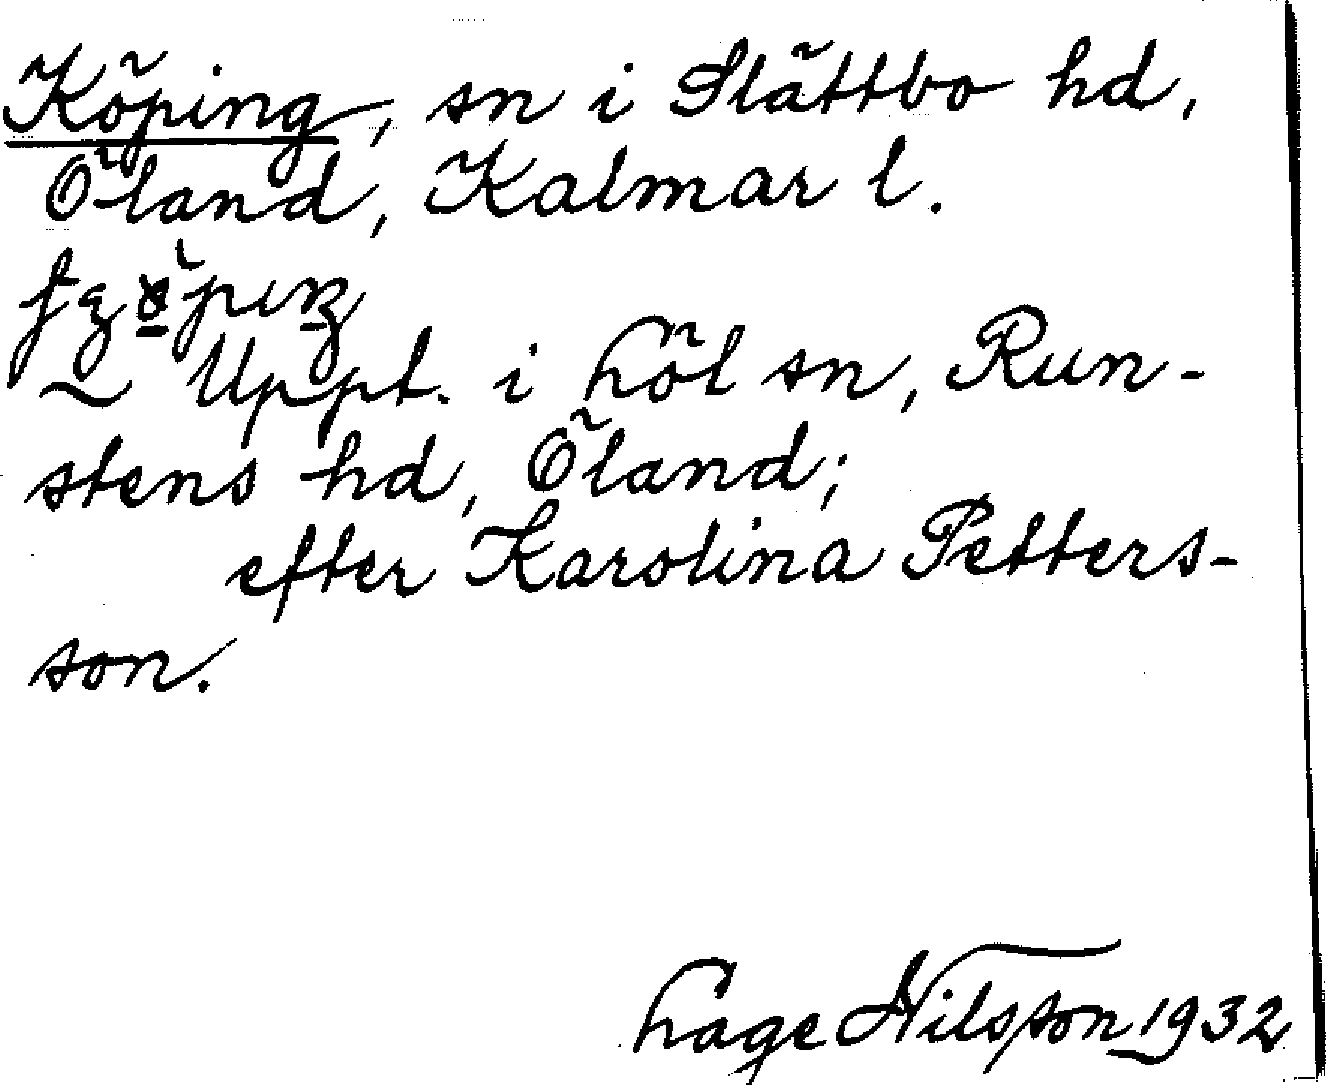 Köping, sn i Slättbo hd,
Öland, Kalmar l.
Uppt. i Löt sn, Run-
stens hd, Öland;
efter Karolina Petters-
son.
Lage Nilsson 1932